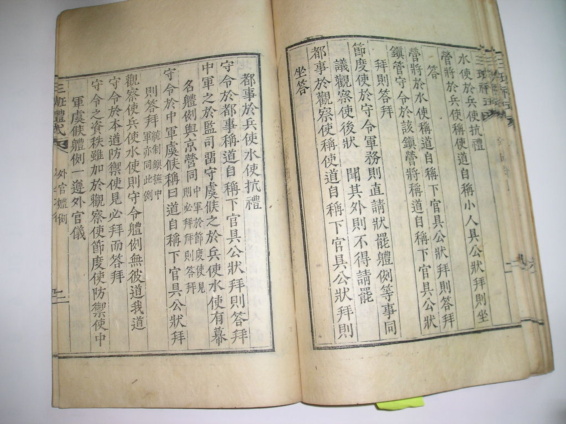 水使於兵使抗禮
營將於水使稱使道自稱小人具公狀拜則坐
答
營將於兵使稱使道自稱下官具公狀拜則答拜
鎭管守令於該鎭管營將稱道自稱下官具公狀
拜則答拜
節度使於守令軍務則直請狀罷軆例等事同
議觀察使後狀 聞其外則不得請罷
都事於觀察使稱使道自稱下官具公狀拜則
坐答
都事於兵使水使抗禮
守令於都事稱道自稱下官具公狀拜則答拜
中軍之於監司閫守虞候之於兵使水使有幕
名軆例與京營同
守令於中軍虞候稱曰道自稱下官具公狀拜
則答拜
觀察使兵使水使則守令軆例無彼道我道
守令於本道防禦使見必拜而答拜
守令之資秩雖加於觀察使節度使防禦使中
軍虞候軆例一遵外官儀
三班禮式
外官軆例